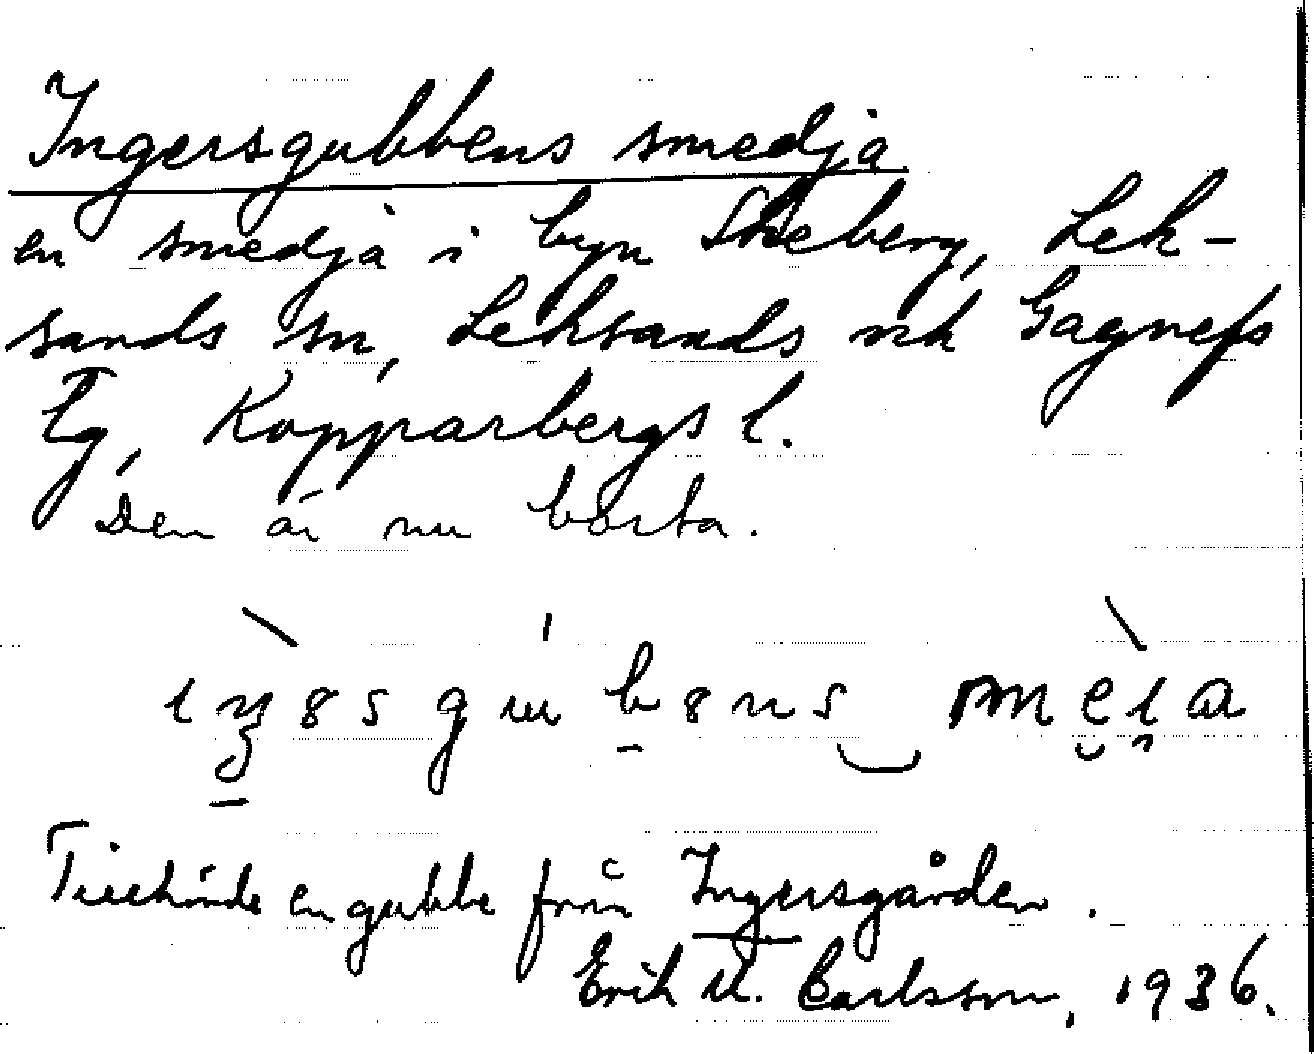 Ingersgubbens smedja
en smedja i byn Skeberg, Lek-
sands sn, Leksands och Gagnefs
tg, Kopparbergs l.
Den är nu borta.
Tillhörde en gubbe från Ingersgården.
Erik U. Carlsson, 1936.